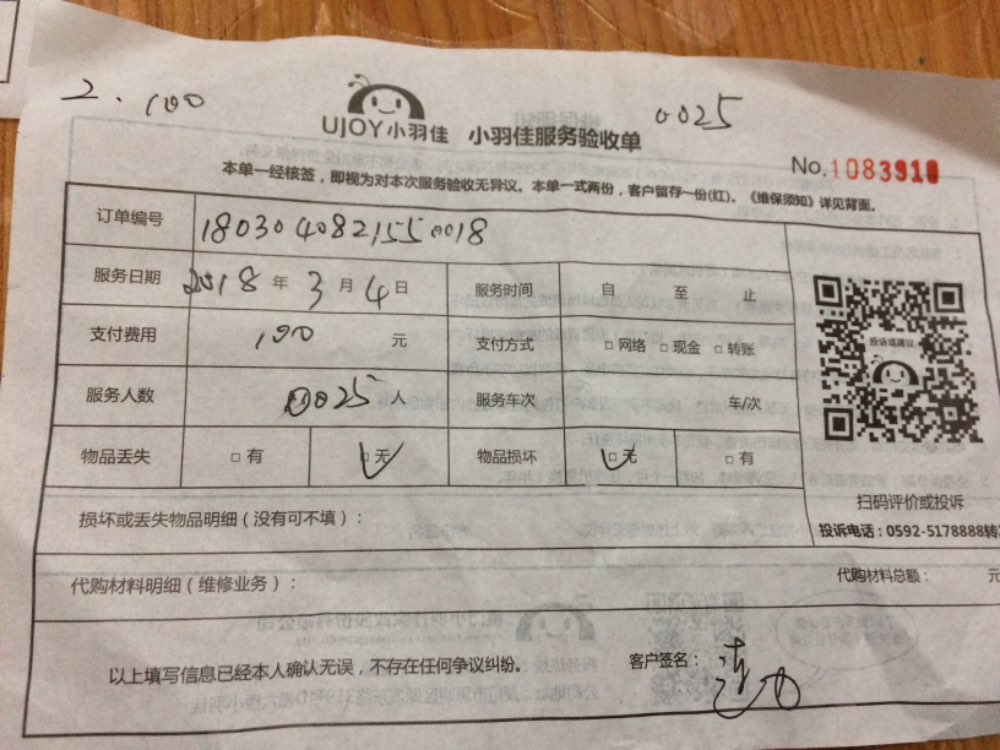 2. 100
0025
UJOY小羽佳 小羽佳服务验收单
No.1083910
本单一经核签，即视为对本次服务验收无异议。本单一式两份，客户留存一份(红)。《维保须知》详见背面。
订单编号 1803040821550018
服务日期 2018 年 3 月 4 日 服务时间 自 至 止
支付费用 100 元 支付方式 □ 网络 □ 现金 □ 转账
投诉或建议
服务人数 0025 人 服务车次 车/次
物品丢失 □ 有 □ 无 物品损坏 □ 无 □ 有
扫码评价或投诉
损坏或丢失物品明细（没有可不填）：
投诉电话：0592-5178888转
代购材料明细（维修业务）：
代购材料总额： 元
以上填写信息已经本人确认无误，不存在任何争议纠纷。
客户签名：